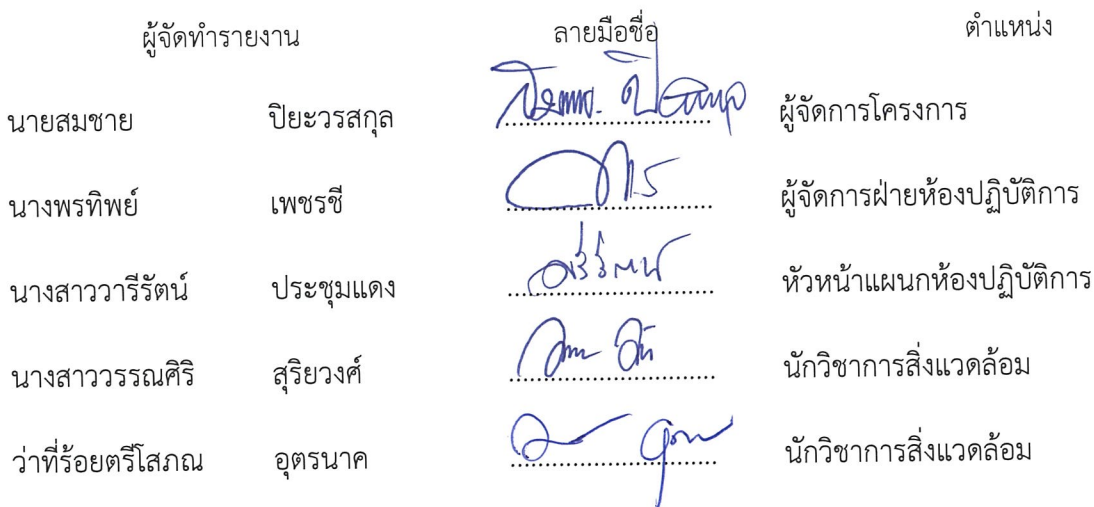 ผู้จัดทำรายงาน ลายมือชื่อ ตำแหน่ง
นายสมชาย ปิยะวรสกุล ผู้จัดการโครงการ
นางพรทิพย์ เพชรชี ผู้จัดการฝ่ายห้องปฏิบัติการ
นางสาววารีรัตน์ ประชุมแดง หัวหน้าแผนกห้องปฏิบัติการ
นางสาววรรณศิริ สุริยวงศ์ นักวิชาการสิ่งแวดล้อม
ว่าที่ร้อยตรีโสภณ อุตรนาค นักวิชาการสิ่งแวดล้อม